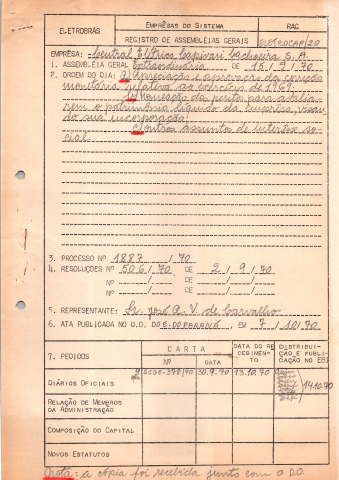 ELETROBRÁS
EMPRÊSAS DO SISTEMA
RAG
REGISTRO DE ASSEMBLÉIAS GERAIS
ELETROCAP/20
EMPRÊSA: Central Elétrica Capivari Cachoeira S.A
1. ASSEMBLÉIA GERAL Extraordinária DE 15/9/70
2. ORDEM DO DIA: a) Apreciação e aprovação da correção
monetária relativa ao exercício de 1969.
b) Nomeação de peritos para avaliar
em o patrimônio líquido da emprêsa, visan
do sua incorporação
c) outros assuntos de interêsse so-
cial.
3. PROCESSO Nº 1887/70
4. RESOLUÇÕES Nº 506/70 DE 2/9/70
Nº / DE / /
Nº / DE / /
5. REPRESENTANTE: Sr. José A. V. de Carvalho
6. ATA PUBLICADA NO D.O. DO E. DO PARANÁ, EM 7/10/70
7. PEDIDOS
CARTA
Nº
DATA
DATA DO RE
CEBIMEN-
TO
DISTRIBUI-
ÇÃO E PUBLI-
CAÇÃO NO EBI
DIÁRIOS OFICIAIS
SCGE-378/70
30.9.70
13.10.70
14.10.70
RELAÇÃO DE MEMBROS
DA ADMINISTRAÇÃO
COMPOSIÇÃO DO CAPITAL
NOVOS ESTATUTOS
Nota: a cópia foi recebida junto com o D.O.